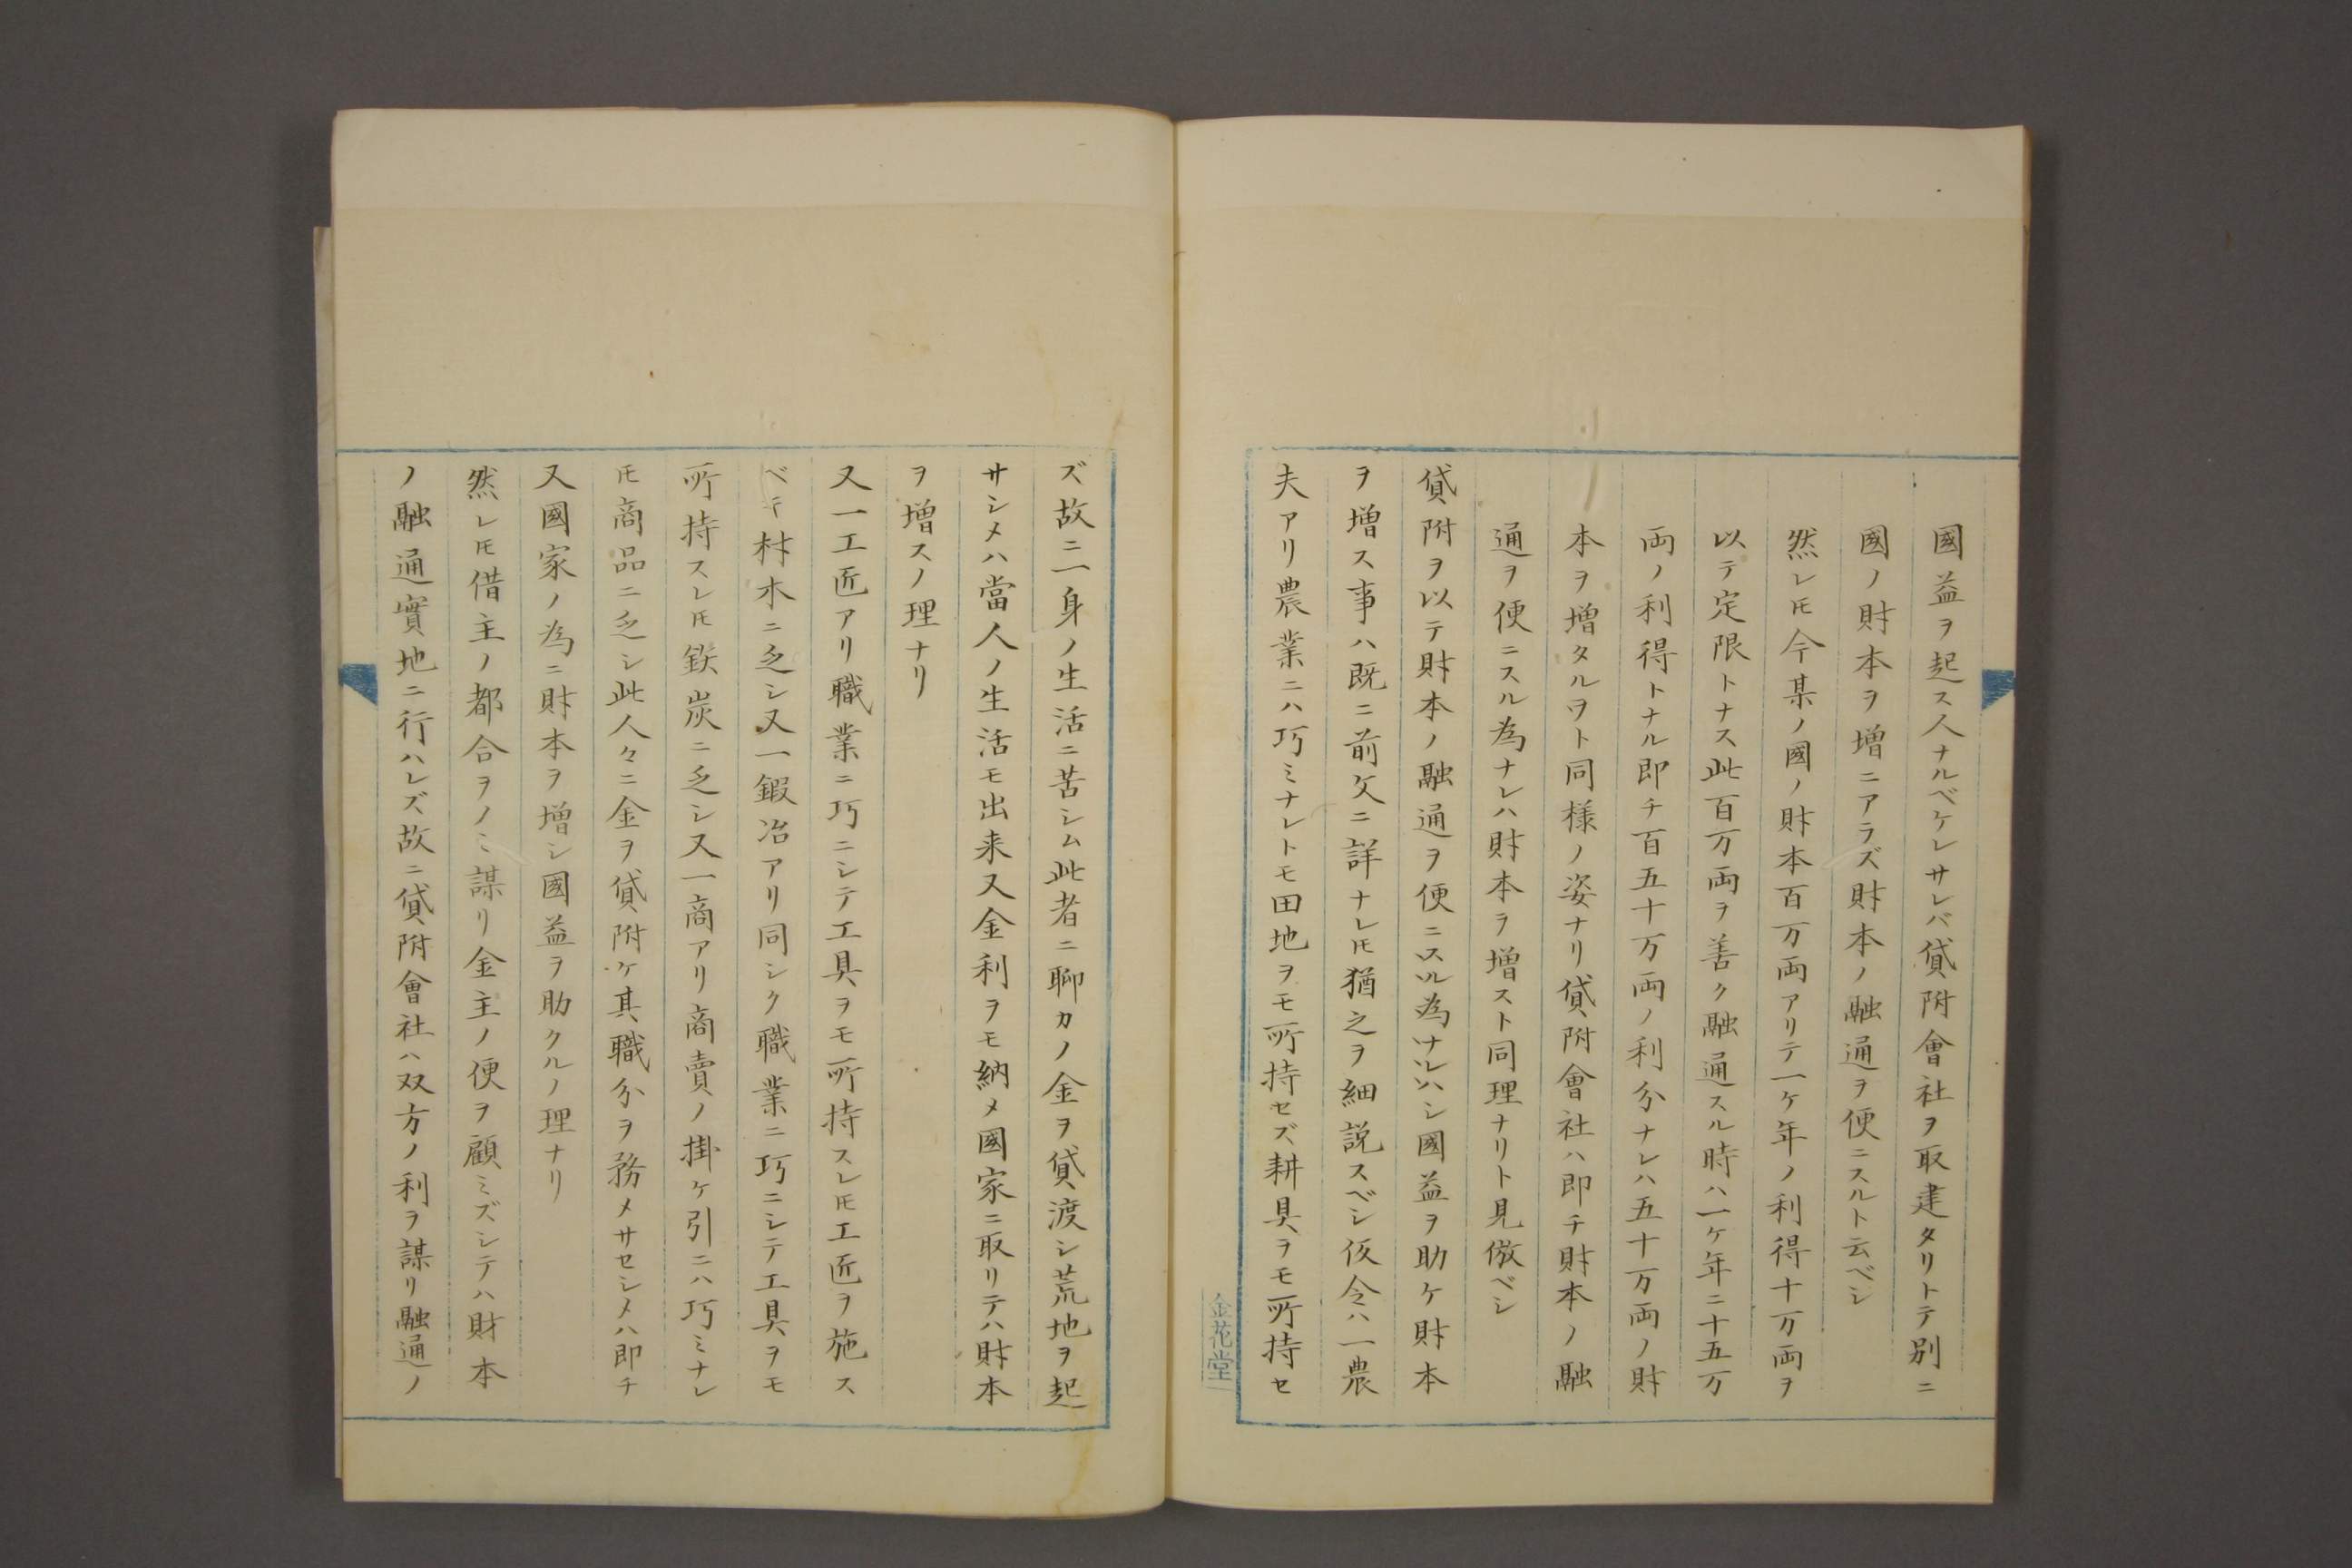 國益ヲ起ス人ナルベケレサレバ貸附會社ヲ取建タリトテ別ニ
國ノ財本ヲ増ニアラズ財本ノ融通ヲ便ニスルト云ベシ
然レ𪜈今某ノ國ノ財本百万両アリテ一ケ年ノ利得十万両ヲ
以テ定限トナス此百万両ヲ善ク融通スル時ハ一ケ年ニ十五万
両ノ利得トナル即チ百五十万両ノ利分ナレハ五十万両ノ財
本ヲ増タルヲト同様ノ姿ナリ貸附會社ハ即チ財本ノ融
通ヲ便ニスル為ナレハ財本ヲ増スト同理ナリト見傚ベシ
貸附ヲ以テ財本ノ融通ヲ便ニスル為ナレハシ國益ヲ助ケ財本
ヲ増ス事ハ既ニ前文ニ詳ナレ𪜈猶之ヲ細説スベシ仮令ハ一農
夫アリ農業ニハ巧ミナレトモ田地ヲモ所持セズ耕具ヲモ所持セ
金花堂
ズ故ニ一身ノ生活ニ苦シム此者ニ聊カノ金ヲ貸渡シ荒地ヲ起
サシメハ當人ノ生活モ出来又金利ヲモ納メ國家ニ取リテハ財本
ヲ増スノ理ナリ
又一工匠アリ職業ニ巧ニシテ工具ヲモ所持スレ𪜈工匠ヲ施ス
ベキ材木ニ乏シ又一鍜冶アリ同シク職業ニ巧ニシテ工具ヲモ
所持スレ𪜈鉄炭ニ乏シ又一商アリ商賣ノ掛ケ引ニハ巧ミナレ
𪜈商品ニ乏シ此人々ニ金ヲ貸附ケ其職分ヲ務メサセシメハ即チ
又國家ノ為ニ財本ヲ増シ國益ヲ助クルノ理ナリ
然レ𪜈借主ノ都合ヲノミ謀リ金主ノ便ヲ顧ミズシテハ財本
ノ融通實地ニ行ハレズ故ニ貸附會社ハ双方ノ利ヲ謀リ融通ノ